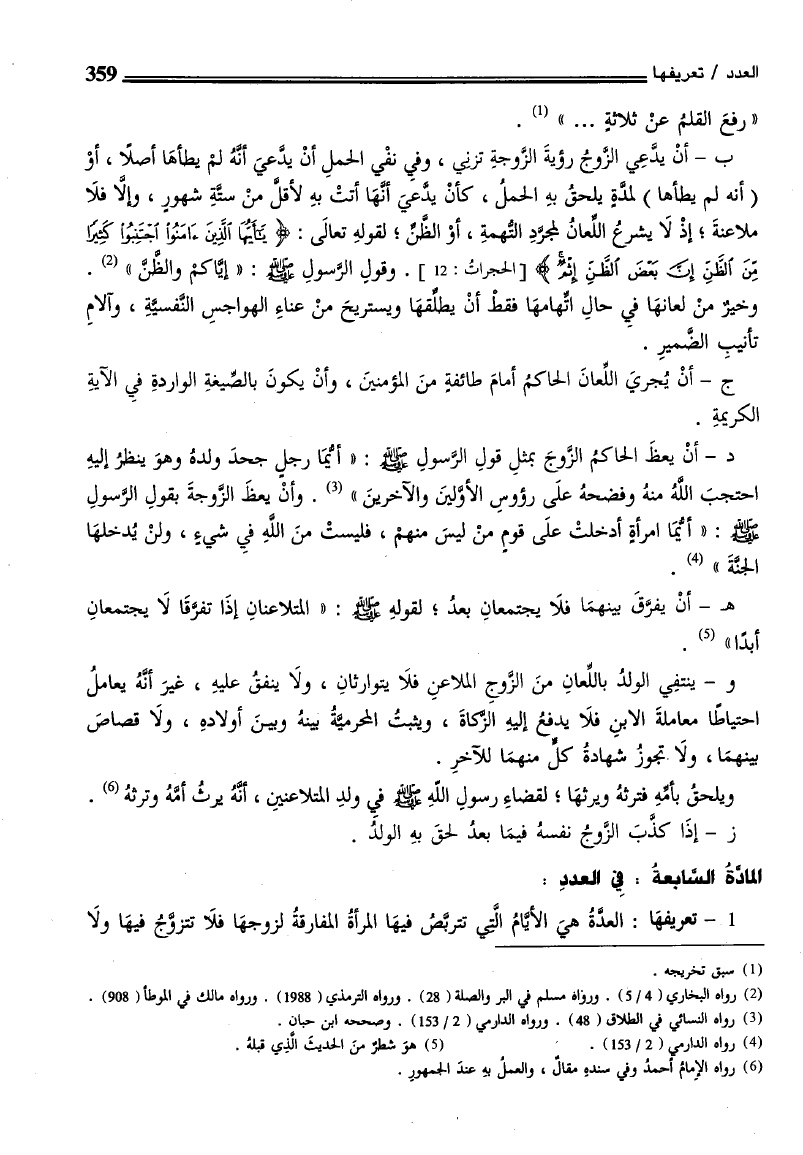 العدد / تعريفها 359
« رفعَ القلمُ عنْ ثلاثةٍ ... » (1) .
ب – أنْ يدَّعِي الزَّوجُ رؤيةَ الزَّوجةِ تزنِي ، وفي نفْي الحملِ أنْ يدَّعيَ أنَّهُ لمْ يطأهَا أصلًا ، أوْ
( أنه لم يطأها ) لمدَّةٍ يلحقُ بهِ الحملُ ، كأنْ يدَّعيَ أنَّهَا أتتْ بهِ لأقلَّ منْ ستَّةِ شهورٍ ، وإلَّا فلَا
ملاعنةَ ؛ إذْ لَا يشرعُ اللِّعانُ لمجرَّدِ التُّهمةِ ، أوْ الظَّنِّ ؛ لقولهِ تعالَى : ﴿ يَٰٓأَيُّهَا ٱلَّذِينَ ءَامَنُوا۟ ٱجْتَنِبُوا۟ كَثِيرًا
مِّنَ ٱلظَّنِّ إِنَّ بَعْضَ ٱلظَّنِّ إِثْمٌ ﴾ [ الحجرات : 12 ] . وقولِ الرَّسولِ ﷺ : « إيَّاكمْ والظَّنَّ » (2) .
وخيرٌ منْ لعانهَا في حالِ اتِّهامهَا فقطْ أنْ يطلِّقهَا ويستريحَ منْ عناءِ الهواجسِ النَّفسيَّةِ ، وآلامِ
تأنيبِ الضَّميرِ .
ج – أنْ يُجريَ اللِّعانَ الحاكمُ أمامَ طائفةٍ منَ المؤمنينَ ، وأنْ يكونَ بالصِّيغةِ الواردةِ في الآيةِ
الكريمةِ .
د – أنْ يعظَ الحاكمُ الزَّوجَ بمثلِ قولِ الرَّسولِ ﷺ : « أيُّمَا رجلٍ جحدَ ولدهُ وهوَ ينظرُ إليهِ
احتجبَ اللَّهُ منهُ وفضحهُ علَى رؤوسِ الأوَّلينَ والآخرينَ » (3) . وأنْ يعظَ الزَّوجةَ بقولِ الرَّسولِ
ﷺ : « أيُّمَا امرأةٍ أدخلتْ علَى قومٍ منْ ليسَ منهمْ ، فليستْ منَ اللَّهِ في شيءٍ ، ولنْ يُدخلهَا
الجنَّةَ » (4) .
هـ – أنْ يفرَّقَ بينهمَا فلَا يجتمعانِ بعدُ ؛ لقولهِ ﷺ : « المتلاعنانِ إذَا تفرَّقَا لَا يجتمعانِ
أبدًا» (5) .
و – ينتفِي الولدُ باللِّعانِ منَ الزَّوجِ الملاعنِ فلَا يتوارثانِ ، ولَا ينفقُ عليهِ ، غيرَ أنَّهُ يعاملُ
احتياطًا معاملةَ الابنِ فلَا يدفعُ إليهِ الزَّكاةَ ، ويثبتُ المحرميَّةُ بينهُ وبينَ أولادهِ ، ولَا قصاصَ
بينهمَا ، ولَا تجوزُ شهادةُ كلٍّ منهمَا للآخرِ .
ويلحقُ بأمِّهِ فترثهُ ويرثهَا ؛ لقضاءِ رسولِ اللَّهِ ﷺ في ولدِ المتلاعنينِ ، أنَّهُ يرثُ أمَّهُ وترثهُ (6) .
ز – إذَا كذَّبَ الزَّوجُ نفسهُ فيمَا بعدُ لحقَ بهِ الولدُ .
المَادَّةُ السَّابعةُ : في العددِ :
1 – تعريفهَا : العدَّةُ هيَ الأيَّامُ الَّتِي تتربَّصُ فيهَا المرأةُ المفارقةُ لزوجهَا فلَا تتزوَّجُ فيهَا ولَا
(1) سبق تخريجه .
(2) رواه البخاري ( 4 / 5 ) . ورواه مسلم في البر والصلة ( 28 ) . ورواه الترمذي ( 1988 ) . ورواه مالك في الموطأ ( 908 ) .
(3) رواه النسائي في الطلاق ( 48 ) . ورواه الدارمي ( 2 / 153 ) . وصححه ابن حبان .
(4) رواه الدارمي ( 2 / 153 ) . (5) هوَ شطرٌ منَ الحديثَ الَّذِي قبلهُ .
(6) رواه الإمامُ أحمدُ وفي سندهِ مقالٌ ، والعملُ بهِ عندَ الجمهورِ .